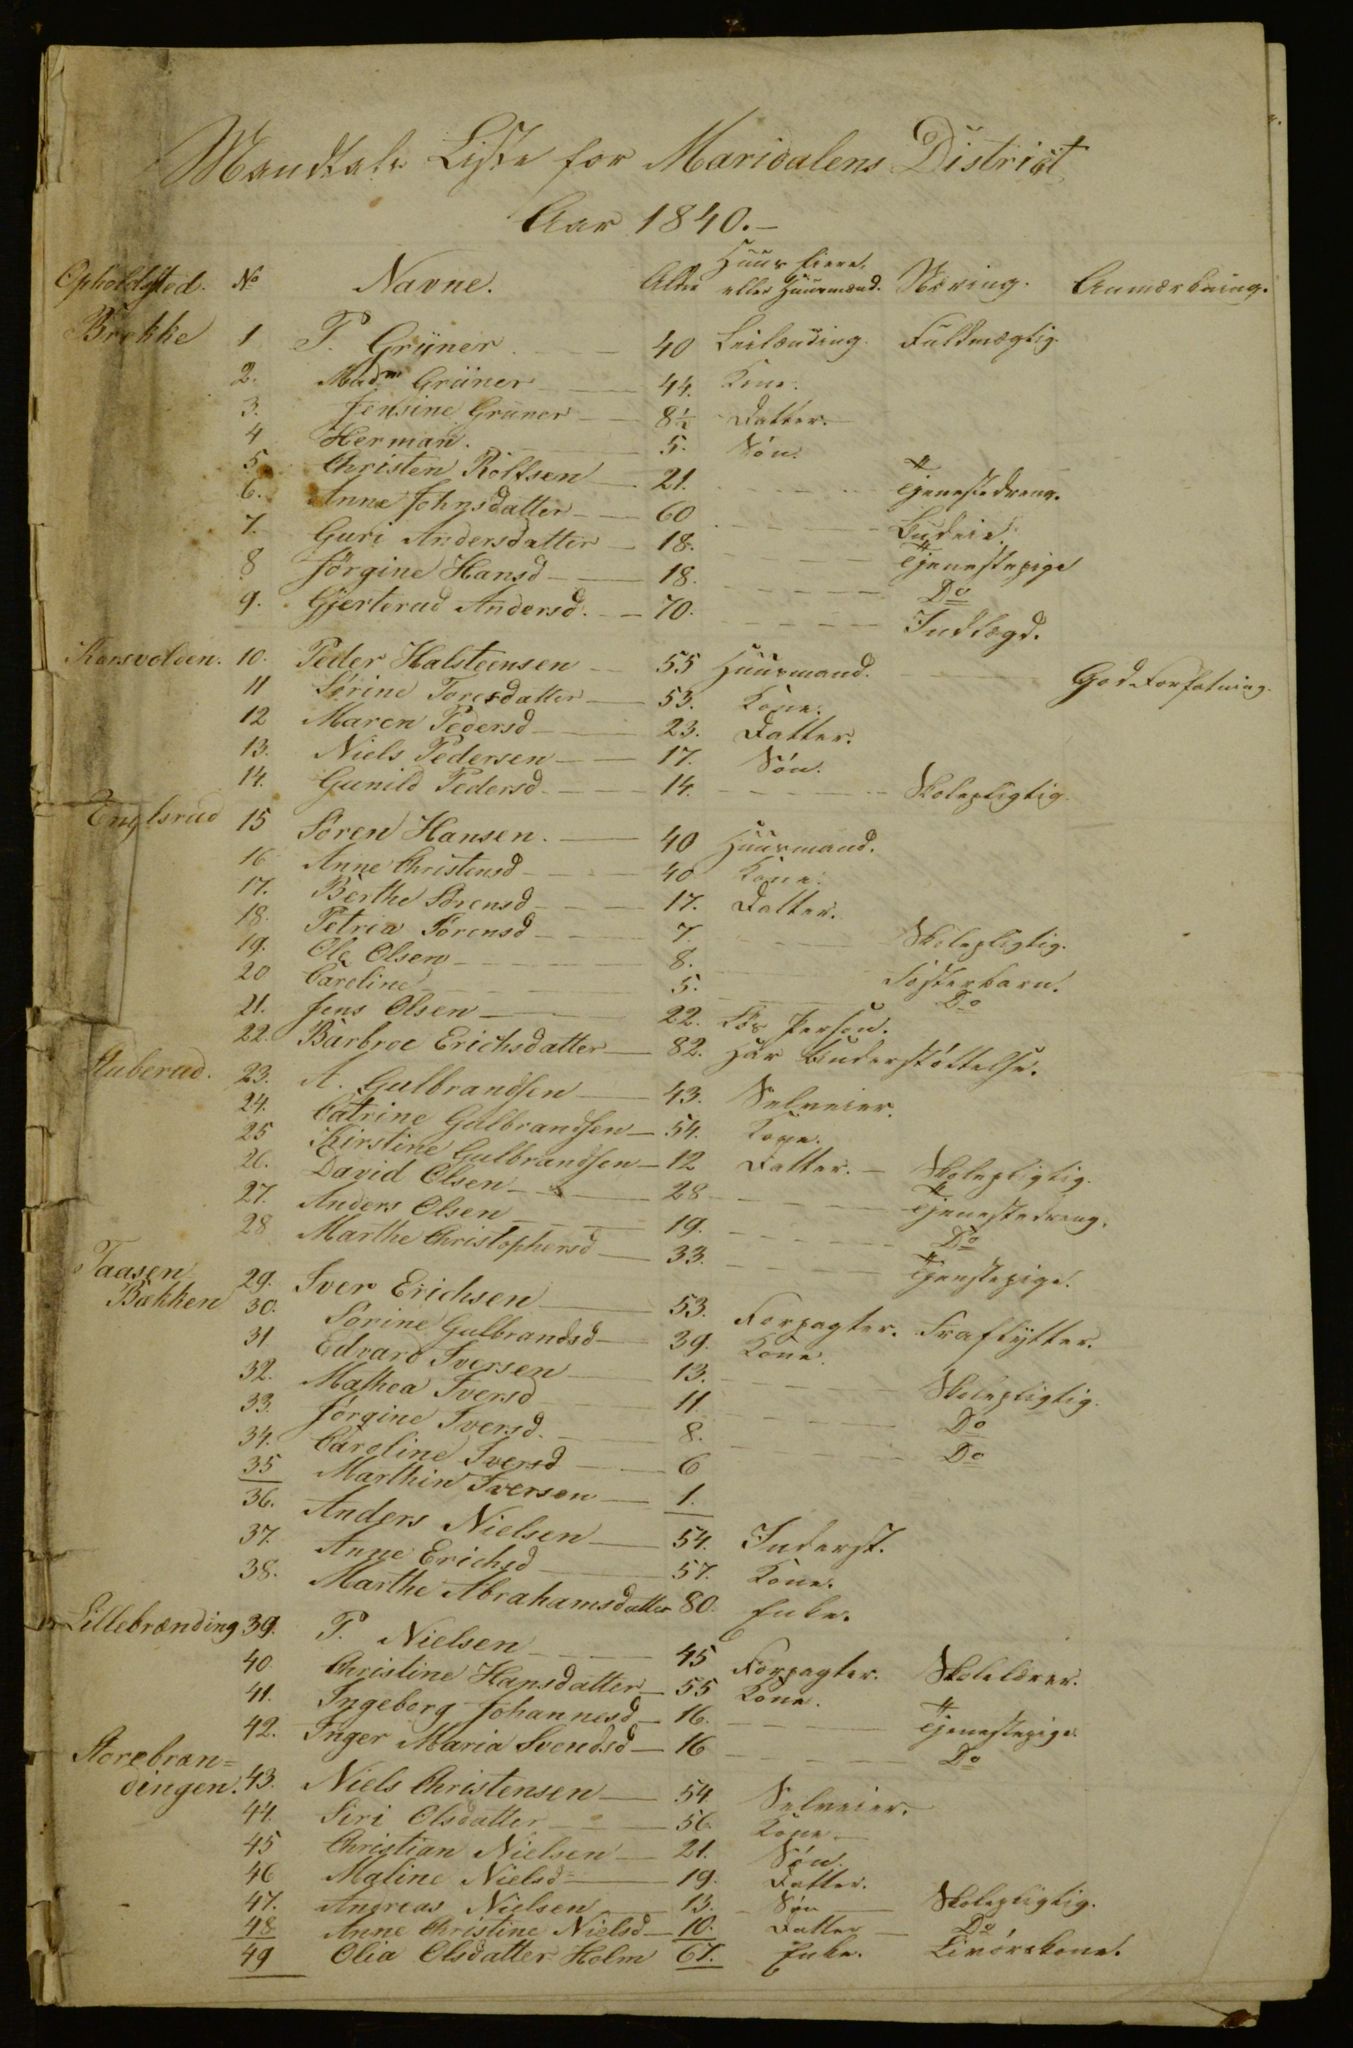 Mandtals Liste for Maridalens District
Aar 1840.-
Opholdssted. No Navne. Alder Huus Eiere, eller Huusmænd. Næring. Anmærkning.
Brekke 1 P. Grüner 40 Leilænding. Fuldmægtig.
2. Madm Grüner 44. Kone.
3. Jensine Grüner 8½ Datter.
4 Herman. 5. Søn.
5 Christen Rolfsen 21. Tjenestedreng.
6. Anne Johnsdatter 60 Budeie.
7. Guri Andersdatter 18. Tjenestepige
8 Jörgine Hansd 18. Do
9. Gjertrud Andersd. 70. Indlægd.
Korsvolden. 10. Peder Halsteensen 55 Huusmand. God Forfatning.
11 Sörine Toresdatter 53. Kone.
12 Maren Pedersd 23. Datter.
13. Niels Pedersen 17. Søn.
14. Gunild Pedersd. 14. Skolepligtig.
Englsrud 15 Sören Hansen. 40 Huusmand.
16 Anne Christensd 40 Kone.
17. Berthe Sörensd 17. Datter.
18. Petria Sörensd 7. Skolepligtig.
19. Ole Olsen 8. Fosterbarn.
20 Caroline 5. Do
21. Jens Olsen 22. Løs Person.
22. Barbroe Erichsdatter 82. Har Understöttelse.
Stuberud. 23. A. Gulbrandsen 43. Selveier.
24. Catrine Gulbrandsen 54. Kone.
25 Kirstine Gulbrandsen 12 Datter. Skolepligtig.
26. David Olsen 28 Tjenestedreng.
27. Anders Olsen 19. Do
28 Marthe Christophersd 33. Tjenstepige.
Taasen
Bækken 29. Iver Erichsen 53. Forpagter. Fraflytter.
30. Sörine Gulbrandsd 39. Kone.
31 Edvard Iversen 13. Skolepligtig.
32. Mathea Iversd 11. Do
33. Jörgine Iversd. 8. Do
34. Caroline Iversd 6
35 Marthin Iversen 1.
36. Anders Nielsen 54. Inderst.
37. Anne Erichsd 57. Kone.
38. Marthe Abrahamsdatter 80. Enke.
Lillebrænding 39. P. Nielsen 45 Forpagter. Skolelærer.
40 Christine Hansdatter 55 Kone.
41. Ingeborg Johannesd 16. Tjenestepige.
42. Inger Maria Svendsd 16 Do
Storebræn=
dingen. 43. Niels Christensen 54 Selveier.
44. Siri Olsdatter 56. Kone
45 Christian Nielsen 21. Søn.
46 Maline Nielsd 19. Datter.
47. Andreas Nielsen 13. Søn Skolepligtig.
48 Anne Christine Nielsd 10. Datter Do
49 Olia Olsdatter Holm 67. Enke. Livörekone.